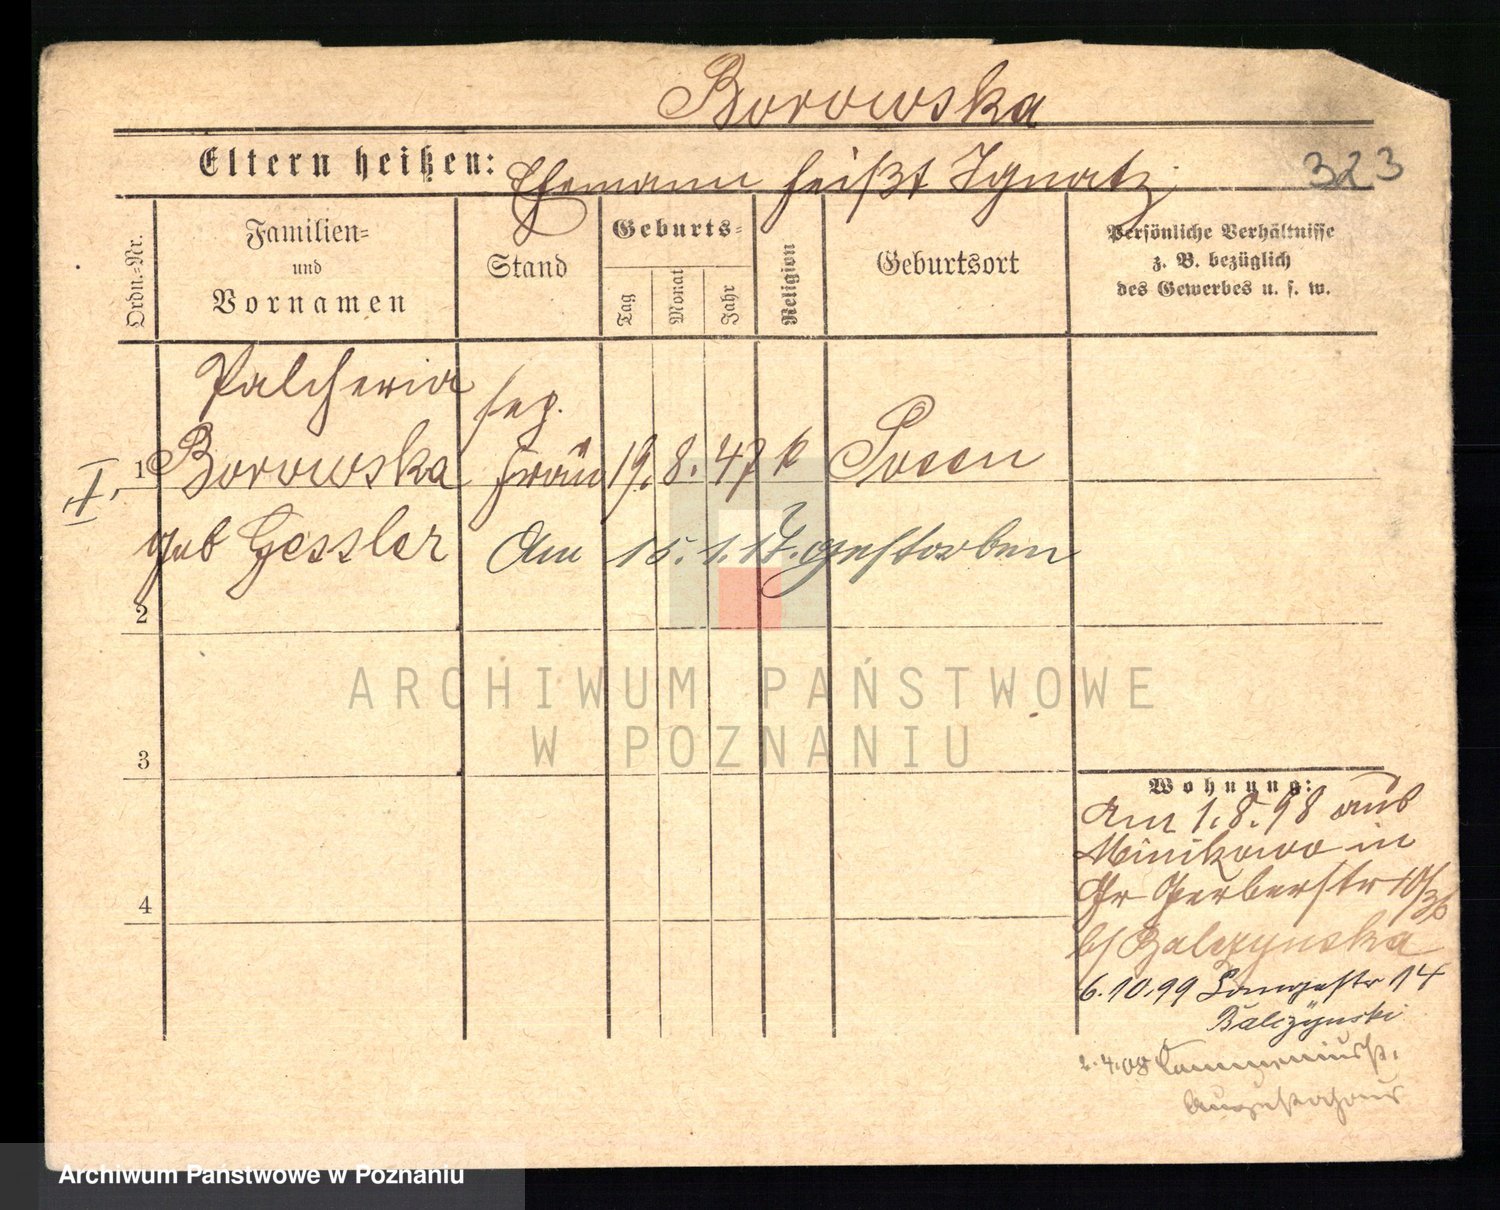 Borowska
Eltern heißen: Ehemann heißt Ignatz
323
Ordn.-Nr.
Familien-
und
Vornamen
Stand
Geburts-
Tag
Monat
Jahr
Religion
Geburtsort
Persönliche Verhältnisse
z. B. bezüglich
des Gewerbes u. s. w.
Pulcheria
sep.
I. 1 Borowska Frau 19. 8. 47 k Posen
geb Gessler Am 15. 1. 17. gestorben
2
3
4
Wohnung:
Am 1. 8. 98 aus
Minikowo in
Gr Gerberstr 10/36
b/ Balczynska
6. 10. 99 Langestr 14
Balczynski
2. 4. 08
Augustahaus
ARCHIWUM PAŃSTWOWE
W POZNANIU
Archiwum Państwowe w Poznaniu